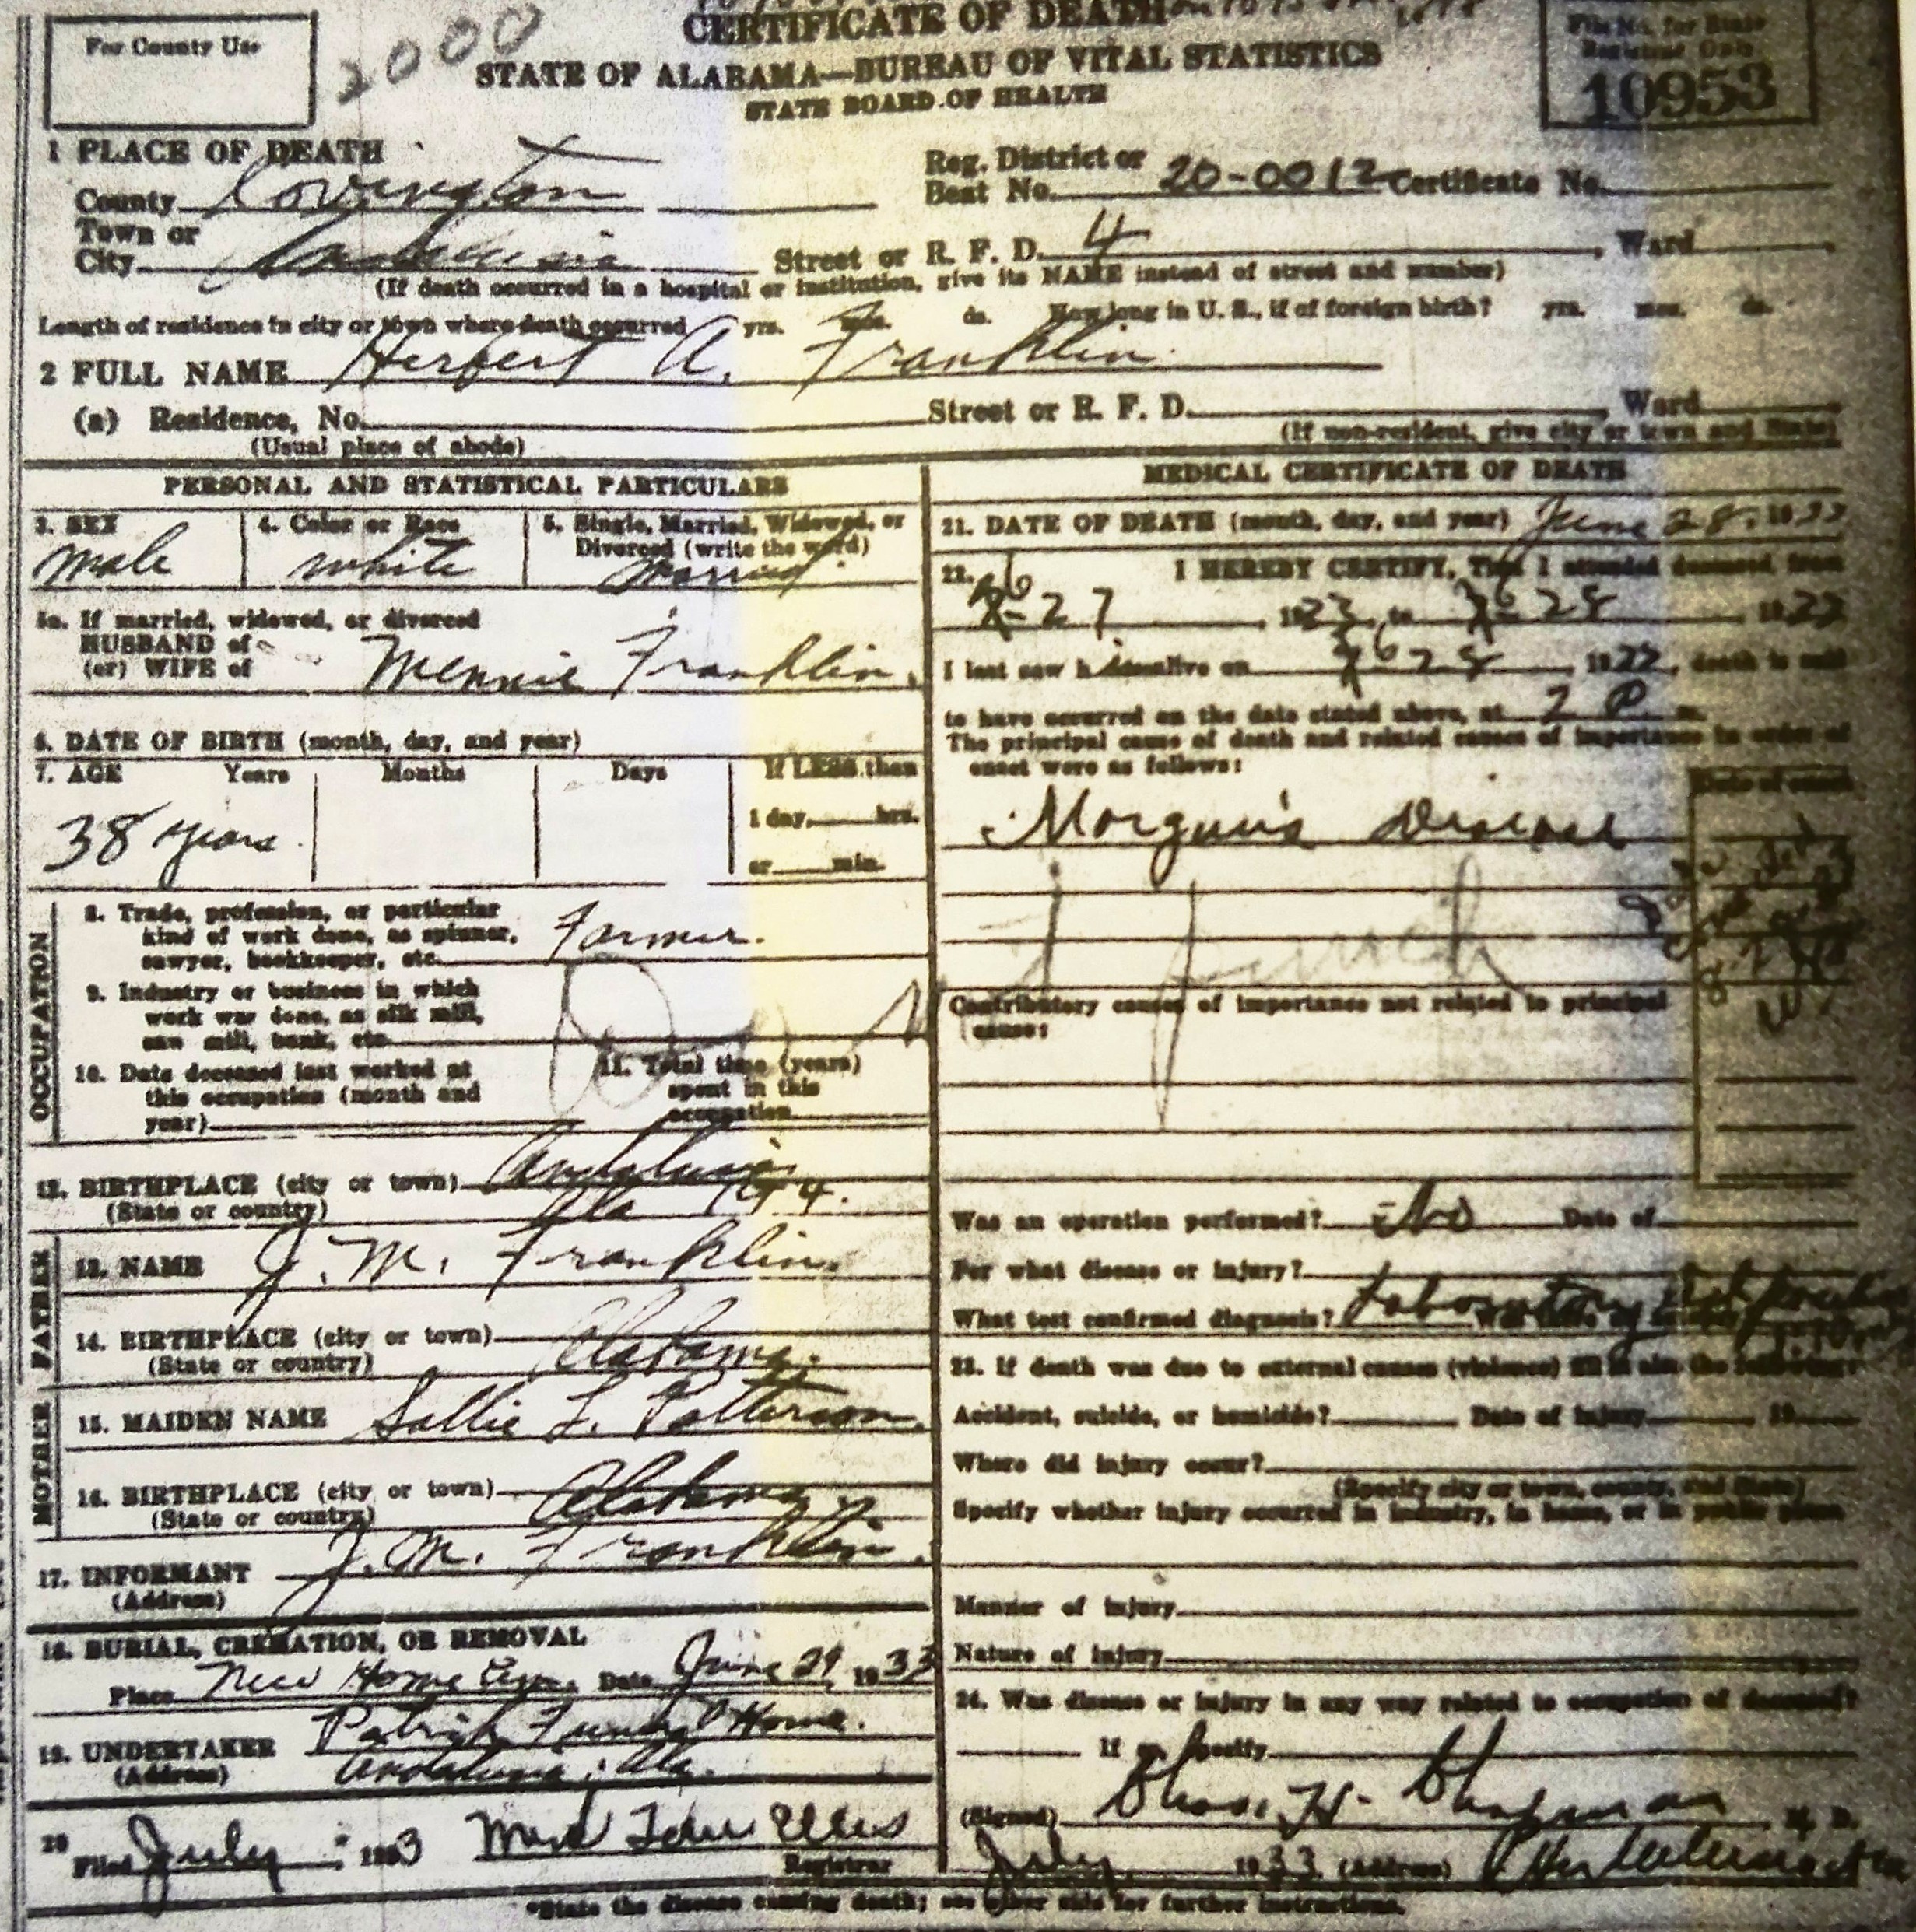 For County Use
2000
CERTIFICATE OF DEATH
STATE OF ALABAMA—BUREAU OF VITAL STATISTICS
STATE BOARD OF HEALTH
File No. for State
Registrar Only
10953
1 PLACE OF DEATH
County Covington
Reg. District or
Beat No. 20-0012 Certificate No.
Town or
City Andalusia Street or R. F. D. 4, Ward
(If death occurred in a hospital or institution, give its NAME instead of street and number)
Length of residence in city or town where death occurred yrs. mos. ds. How long in U. S., if of foreign birth? yrs. mos. ds.
2 FULL NAME Herbert A. Franklin
(a) Residence, No. Street or R. F. D., Ward
(Usual place of abode) (If non-resident, give city or town and State)
PERSONAL AND STATISTICAL PARTICULARS
3. SEX
male
4. Color or Race
white
5. Single, Married, Widowed, or
Divorced (write the word)
married
5a. If married, widowed, or divorced
HUSBAND of
(or) WIFE of Mennie Franklin
6. DATE OF BIRTH (month, day, and year)
7. AGE Years Months Days If LESS than
1 day, hrs.
or min.
38 years
OCCUPATION
8. Trade, profession, or particular
kind of work done, as spinner,
sawyer, bookkeeper, etc. Farmer.
9. Industry or business in which
work was done, as silk mill,
saw mill, bank, etc.
10. Date deceased last worked at
this occupation (month and
year)
11. Total time (years)
spent in this
occupation
12. BIRTHPLACE (city or town) Andalusia
(State or country) Ala
FATHER
13. NAME J. M. Franklin.
14. BIRTHPLACE (city or town)
(State or country) Alabama.
MOTHER
15. MAIDEN NAME Sallie L. Patterson.
16. BIRTHPLACE (city or town)
(State or country) Alabama
17. INFORMANT J. M. Franklin.
(Address)
18. BURIAL, CREMATION, OR REMOVAL
Place New Home Date June 29, 1933
19. UNDERTAKER Funeral Home.
(Address) Andalusia, Ala.
20
Filed July 1933 Ellis
Registrar
MEDICAL CERTIFICATE OF DEATH
21. DATE OF DEATH (month, day, and year) June 28, 1933
22. I HEREBY CERTIFY, That I attended deceased from
6-27, 1933, to 6-28, 1933
I last saw him alive on 6 28, 1933, death is said
to have occurred on the date stated above, at 2 P m.
The principal cause of death and related causes of importance in order of
onset were as follows:
Date of onset
Disease
Contributory causes of importance not related to principal
cause:
Was an operation performed? No Date of
For what disease or injury?
What test confirmed diagnosis? Laboratory
23. If death was due to external causes (violence) fill in also the following:
Accident, suicide, or homicide? Date of injury 19
Where did injury occur?
(Specify city or town, county, and State)
Specify whether injury occurred in industry, in home, or in public place.
Manner of injury
Nature of injury
24. Was disease or injury in any way related to occupation of deceased?
If so, specify
(Signed) Chas. H. Chapman M. D.
July 1933 (Address)
*State the disease causing death; see other side for further instructions.